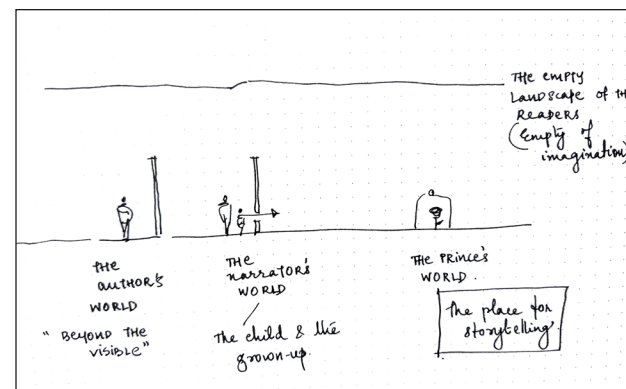 THE EMPTY
LANDSCAPE OF TH
READERS
(empty of
imagination)
THE
AUTHOR'S
WORLD
" BEYOND THE
VISIBLE"
THE
narrator's
WORLD
The child & the
grown-up.
THE PRINCE'S
WORLD.
The place for
storytelling.